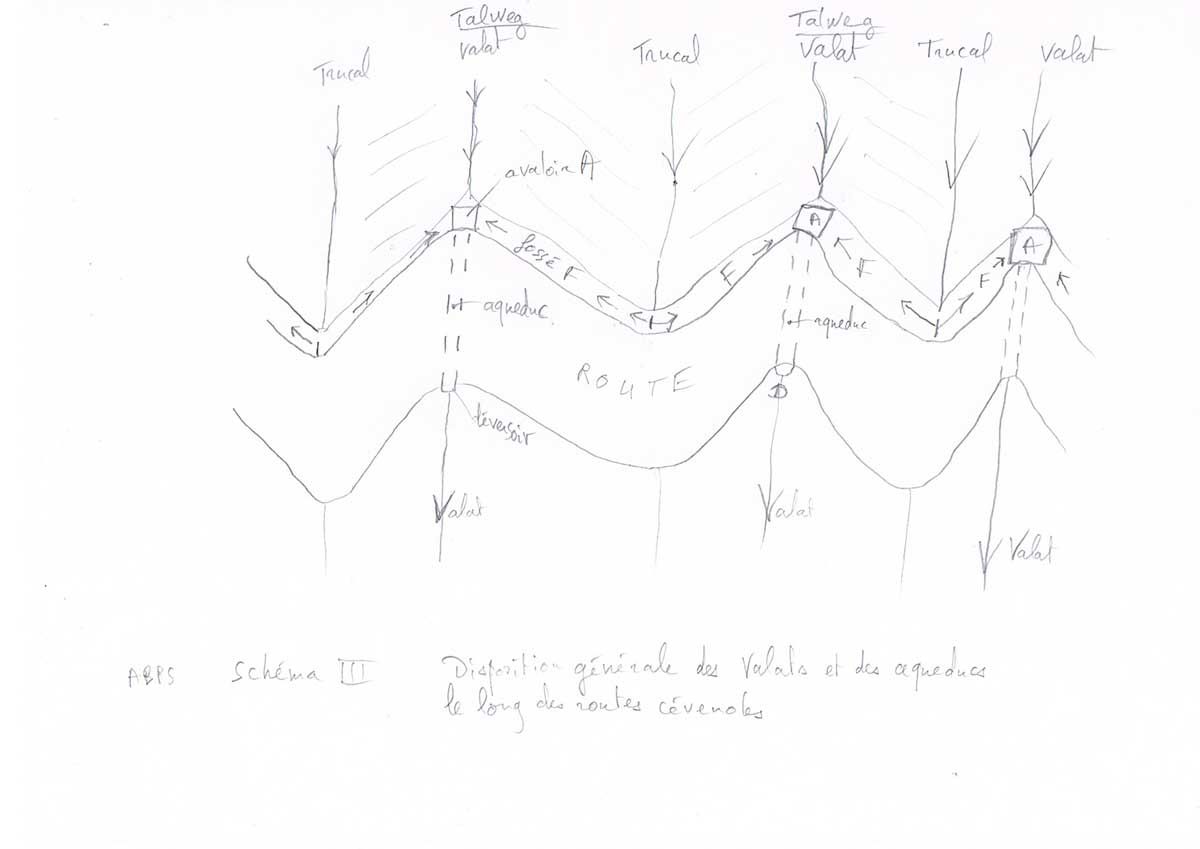 Talweg
Valat
Talweg
Valat
Trucal
Trucal
Trucal
Valat
avaloir A
fossé F
F
A
F
F
A
aqueduc
aqueduc
ROUTE
D
déversoir
Valat
Valat
Valat
ABPS Schéma III Disposition générale des Valats et des aqueducs
le long des routes cévenoles